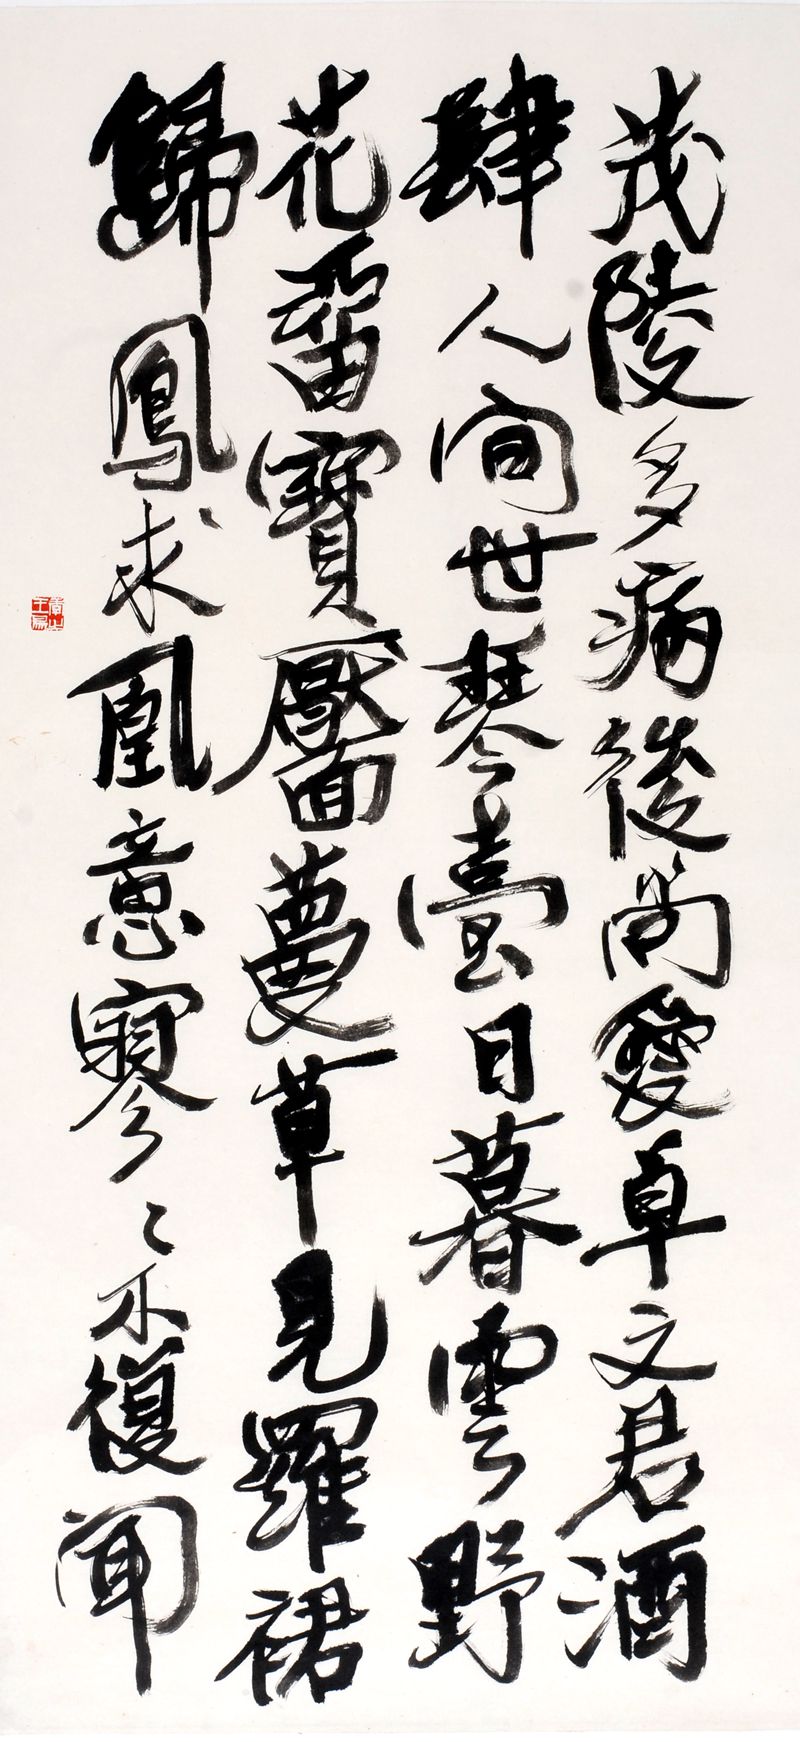 茂陵多病後尚愛卓文君酒
肆人间世琴臺日暮雲野
花留寶靨面蔓草見羅裙
歸鳳求凰意寥々不復闻